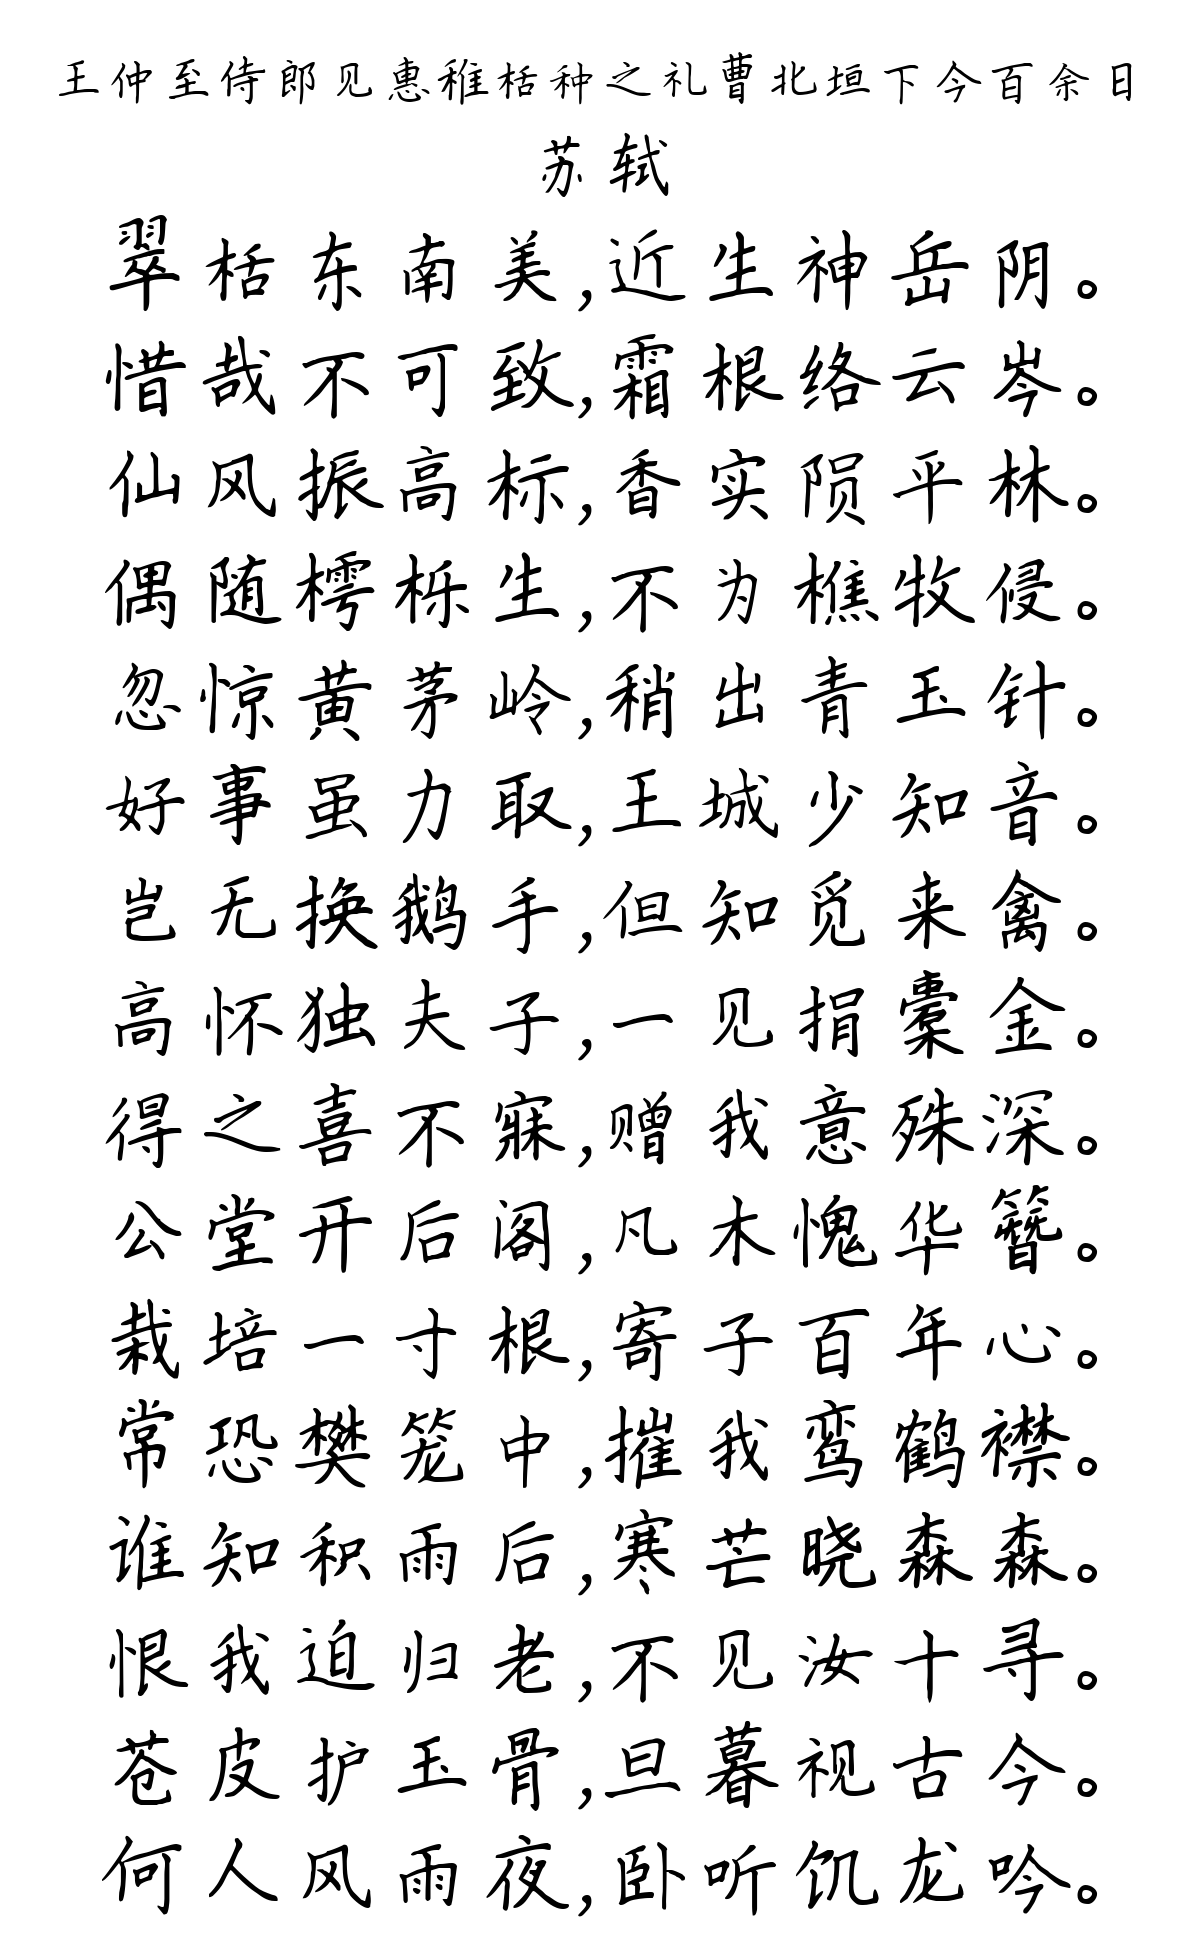 王仲至侍郎见惠稚栝种之礼曹北垣下今百余日
苏轼
翠栝东南美,近生神岳阴。
惜哉不可致,霜根络云岑。
仙风振高标,香实陨平林。
偶随樗栎生,不为樵牧侵。
忽惊黄茅岭,稍出青玉针。
好事虽力取,王城少知音。
岂无换鹅手,但知觅来禽。
高怀独夫子,一见捐橐金。
得之喜不寐,赠我意殊深。
公堂开后阁,凡木愧华簪。
栽培一寸根,寄子百年心。
常恐樊笼中,摧我鸾鹤襟。
谁知积雨后,寒芒晓森森。
恨我迫归老,不见汝十寻。
苍皮护玉骨,旦暮视古今。
何人风雨夜,卧听饥龙吟。